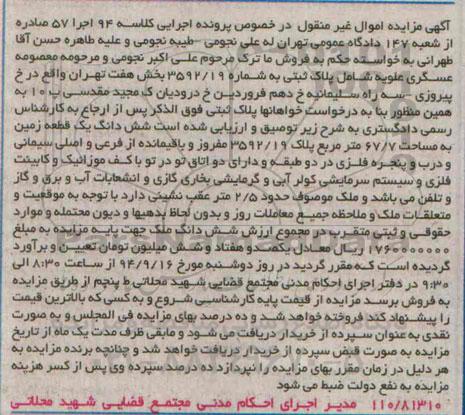 آگهی مزایده اموال غیر منقول در خصوص پرونده اجرایی کلاسه ۹۴ اجرا ۵۷ صادره
از شعبه ۱۴۷ دادگاه عمومی تهران له علی نجومی -طیبه نجومی و علیه طاهره حسن آقا
طهرانی به خواسته حکم به فروش ما ترک مرحوم علی اکبر نجومی و مرحومه معصومه
عسگری علویه شامل پلاک ثبتی به شماره ۳۵۹۲/۱۹ بخش هفت تهران واقع در خ
پیروزی - سه راه سلیمانیه خ دهم فروردین خ درودیان ک مجید مقدسی پ ۱۰ به
همین منظور بنا به درخواست خواهانها پلاک ثبتی فوق الذکر پس از ارجاع به کارشناس
رسمی دادگستری به شرح زیر توصیق و ارزیابی شده است شش دانگ یک قطعه زمین
به مساحت ۶۷/۷ متر مربع پلاک ۳۵۹۲/۱۹ مفروز و باقیمانده از فرعی و اصلی سیمانی
و درب و پنجره فلزی در دو طبقه و دارای دو اتاق تو در تو با کف موزائیک و کابینت
فلزی و سیستم سرمایشی کولر آبی و گرمایشی بخاری گازی و انشعابات آب و برق و گاز
و تلفن می باشد و ملک موصوف حدود ۲/۵ متر عقب نشینی دارد با توجه به موقعیت و
متعلقات ملک و ملاحظه جمیع معاملات روز و بدون لحاظ بدهیها و دیون محتمله و موارد
حقوقی و ثبتی متقرب در مجموع ارزش شش دانگ ملک جهت پایه مزایده به مبلغ
۱۷۶۰۰۰۰۰۰۰ ریال معادل یکصدو هفتاد و شش میلیون تومان تعیین و برآورد
گردیده است که مقرر گردید در روز دوشنبه مورخ ۹۴/۹/۱۶ از ساعت ۸:۳۰ الی
۹:۳۰ در دفتر اجرای احکام مدنی مجتمع قضایی شهید محلاتی ط پنجم از طریق مزایده
به فروش برسد مزایده از قیمت پایه کارشناسی شروع و به کسی که بالاترین قیمت
را پیشنهاد کند فروخته خواهد شد و ده درصد بهای مزایده فی المجلس و به صورت
نقدی به عنوان سپرده از خریدار دریافت می شود و مابقی ظرف مدت یک ماه از تاریخ
مزایده به صورت قبض سپرده از خریدار دریافت خواهد شد و چنانچه برنده مزایده به
هر دلیل در زمان مقرر بهای مزایده را نپردازد ده درصد سپرده وی پس از کسر هزینه
مزایده به نفع دولت ضبط می شود
۱۱۰/۸۱۳۱۰ مدیر اجرای احکام مدنی مجتمع قضایی شهید محلاتی